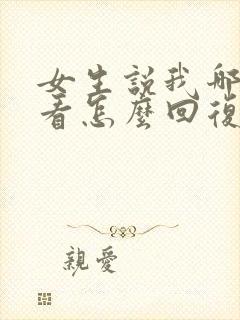 女生說我哪
看怎麼回復
親愛